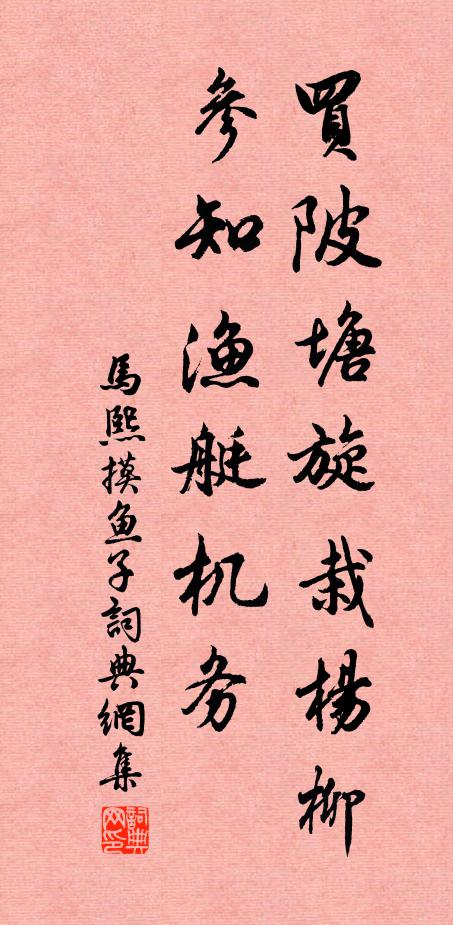 買陂塘旋栽楊柳
參知漁艇机务
馬熙摸魚子詞典網集
詞典网印